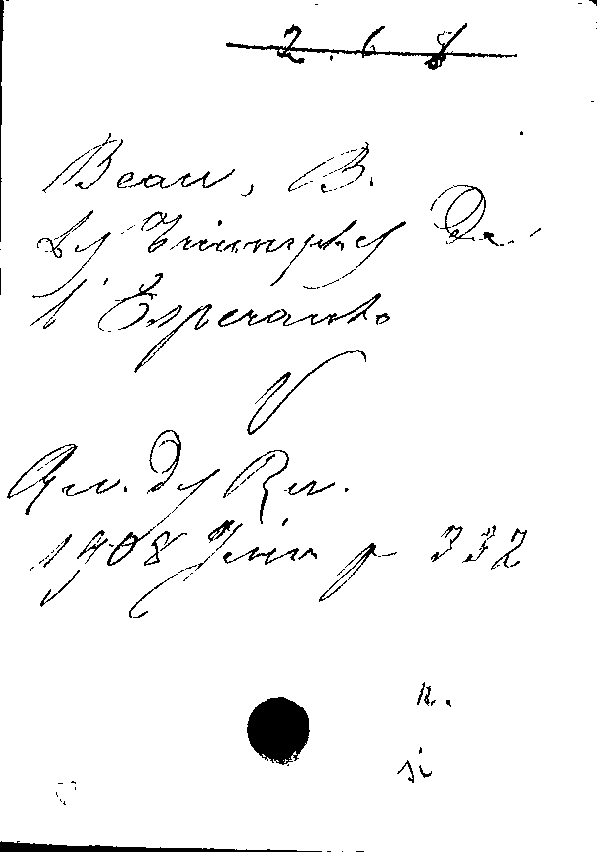 2.6.8
Beau, B.
Les Triumphes De
l'Esperanto
V
Rev. Des Rev.
1908 Juin p 332
n.
si